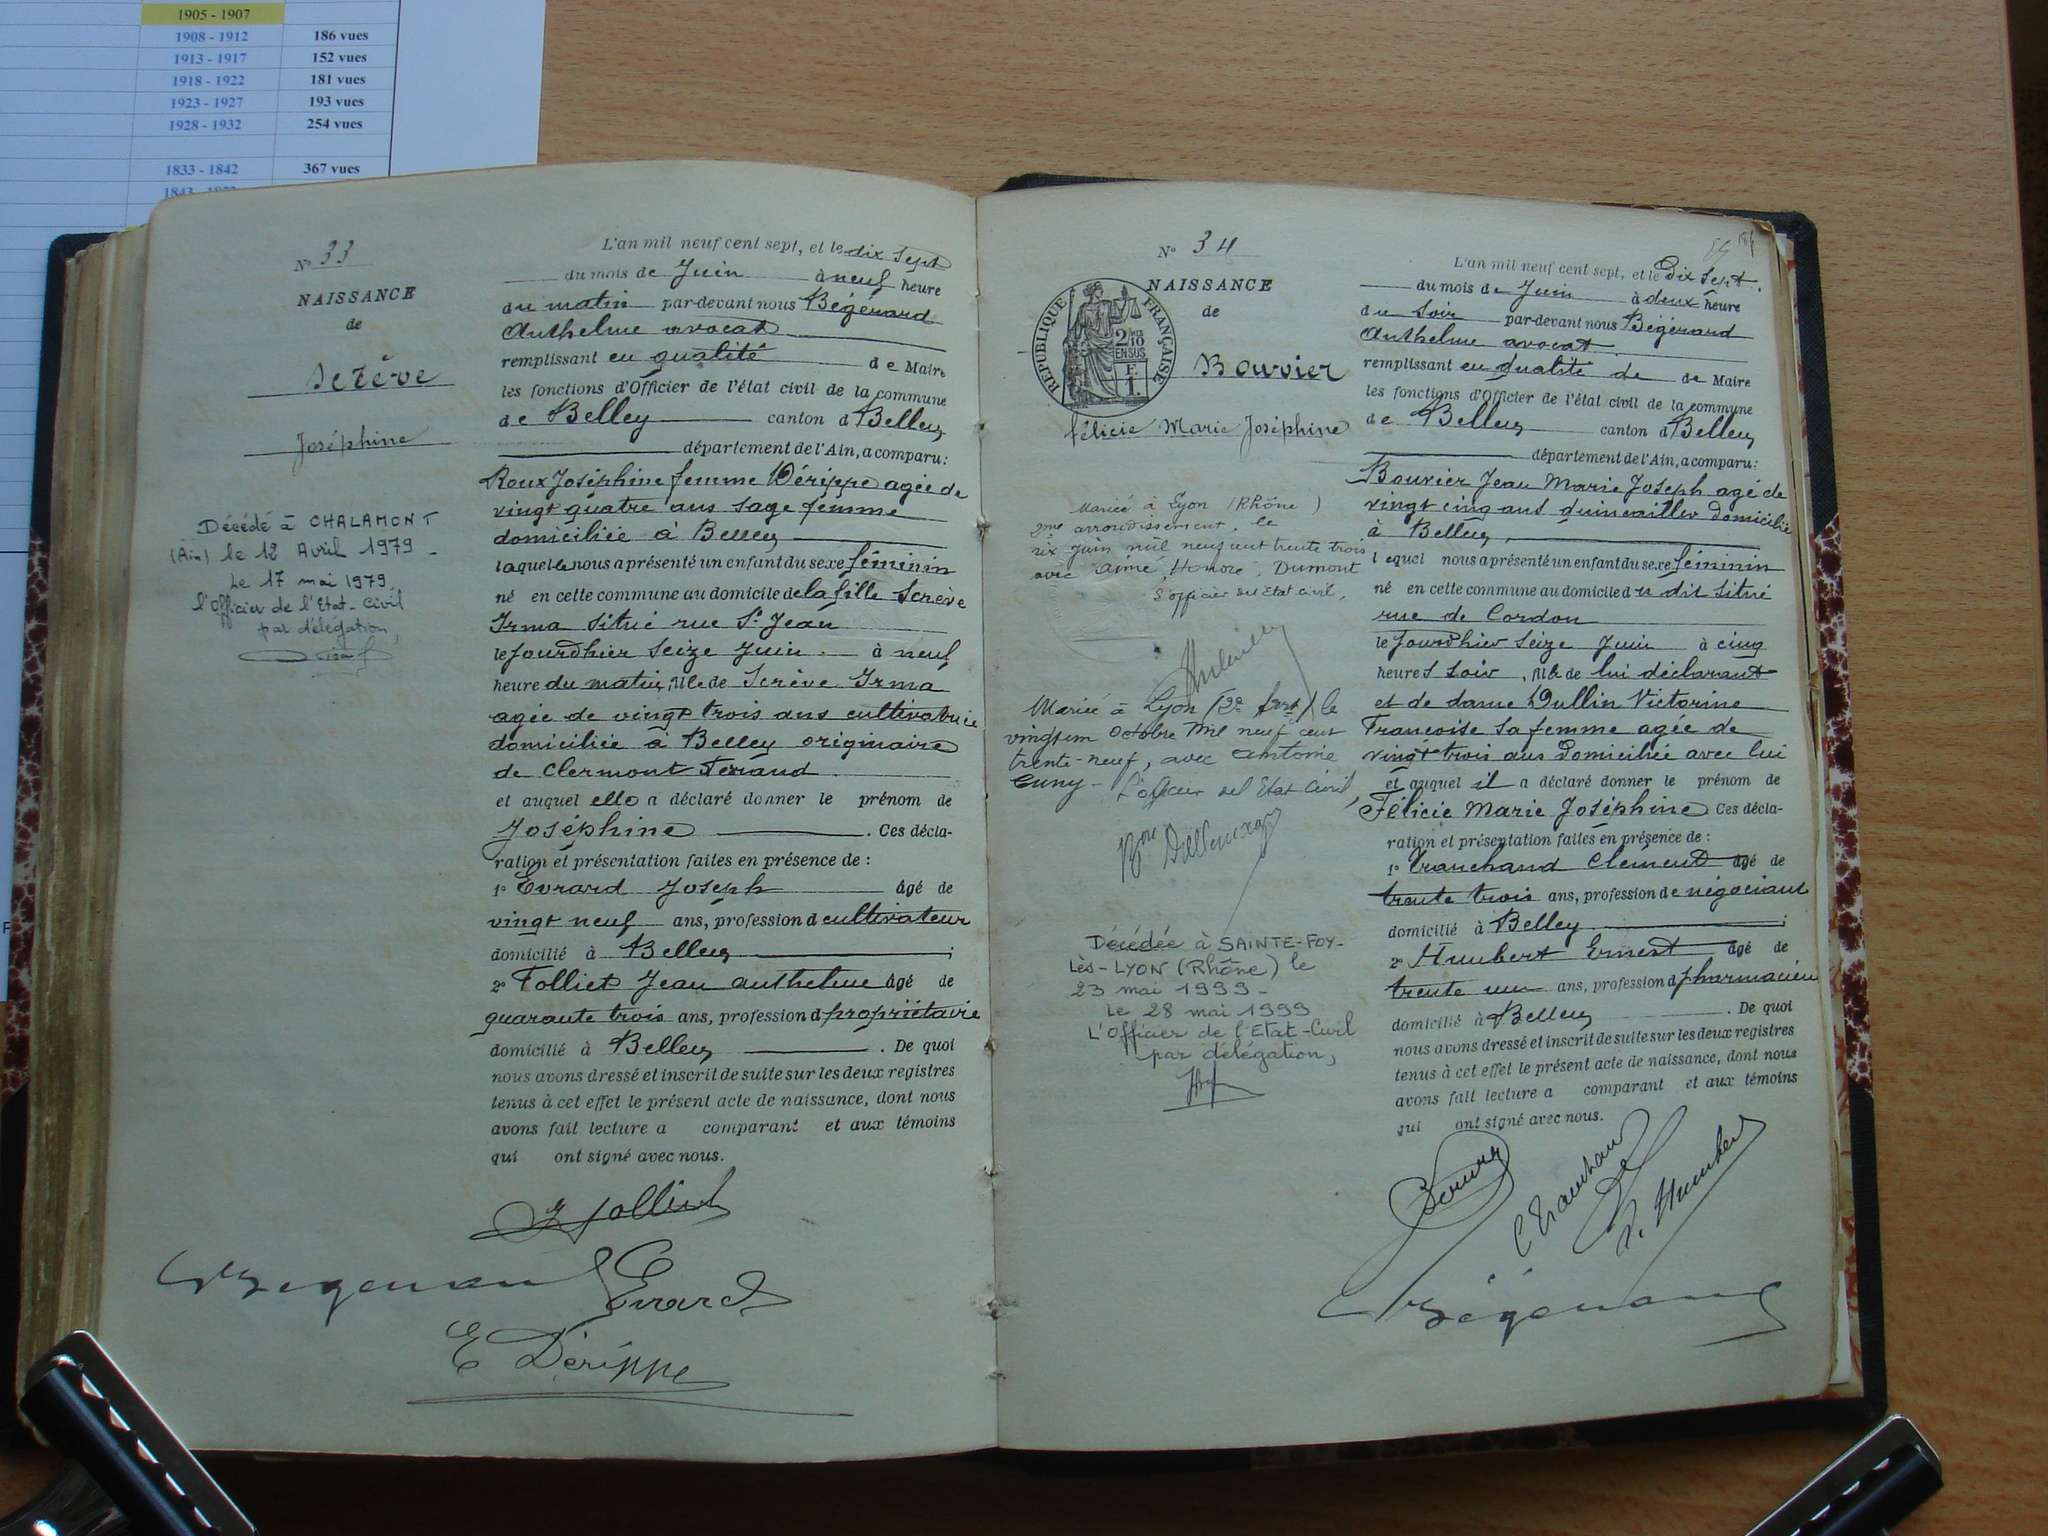 1905 - 1907
1908 - 1912 186 vues
1913 - 1917 152 vues
1918 - 1922 181 vues
1923 - 1927 193 vues
1928 - 1932 254 vues
1833 - 1842 367 vues
N° 33
NAISSANCE
de
Screve
Joséphine
Décédé à CHALAMONT
(Ain) le 12 Avril 1979 -
Le 17 mai 1979,
l'Officier de l'Etat-Civil
par délégation,
L'an mil neuf cent sept, et le dix sept
du mois de Juin à neuf heure
du matin par-devant nous Bégérard
Anthelme avocat
remplissant en qualité de Maire
les fonctions d'Officier de l'état civil de la commune
de Belley canton d Belley
département de l'Ain, a comparu :
Roux Joséphine femme Dérippe agée de
vingt quatre ans sage femme
domiciliée à Belley
laquelle nous a présenté un enfant du sexe féminin
né en cette commune au domicile de la fille Screve
Irma situé rue St Jean
le jourdhier seize Juin à neuf
heure du matin, fille de Scrève Irma
agée de vingt trois ans cultivatrice
domiciliée à Belley originaire
de Clermont Ferrand
et auquel elle a déclaré donner le prénom de
Joséphine . Ces décla-
ration et présentation faites en présence de :
1° Evrard Joseph âgé de
vingt neuf ans, profession d cultivateur
domicilié à Belley ;
2° Folliet Jean anthelme âgé de
quarante trois ans, profession d propriétaire
domicilié à Belley . De quoi
nous avons dressé et inscrit de suite sur les deux registres
tenus à cet effet le présent acte de naissance, dont nous
avons fait lecture a comparant et aux témoins
qui ont signé avec nous.
J Folliet
Bégérard Evrard
E Dérippe
N° 34
NAISSANCE
de
RÉPUBLIQUE FRANÇAISE
2/10
EN SUS
F.
1.
Bouvier
félicie Marie Joséphine
Mariée à Lyon (Rhône)
2me arrondissement, le
six Juin mil neuf cent trente trois
avec Aimé, Honoré, Dumont
L'officier de l'Etat civil,
Mariée à Lyon (2e Arrt) le
vingt un octobre mil neuf cent
trente-neuf, avec Antoine
Cuny - L'officier de l'Etat Civil,
Décédée à SAINTE-FOY-
Lès-LYON (Rhône) le
23 mai 1999 -
Le 28 mai 1999
L'Officier de l'Etat-Civil
par délégation,
L'an mil neuf cent sept, et le Dix Sept
du mois de Juin à deux heure
du soir par-devant nous Bégérard
Anthelme avocat
remplissant en qualité de de Maire
les fonctions d'Officier de l'état civil de la commune
de Belley canton d Belley
département de l'Ain, a comparu :
Bouvier Jean Marie Joseph agé de
vingt cinq ans quincailler domicilié
à Belley
lequel nous a présenté un enfant du sexe féminin
né en cette commune au domicile d u dit situé
rue de Cordon
le jourdhier seize Juin à cinq
heures soir, fille de lui déclarant
et de dame Dullin Victorine
Francoise sa femme agée de
vingt trois ans Domiciliée avec lui
et auquel il a déclaré donner le prénom de
Félicie Marie Joséphine Ces décla-
ration et présentation faites en présence de :
1° Tranchand Clément âgé de
trente trois ans, profession de négociant
domicilié à Belley ;
2° Humbert Ernest âgé de
trente un ans, profession d pharmacien
domicilié à Belley . De quoi
nous avons dressé et inscrit de suite sur les deux registres
tenus à cet effet le présent acte de naissance, dont nous
avons fait lecture a comparant et aux témoins
qui ont signé avec nous.
C Tranchand
E. Humbert
Bégérard